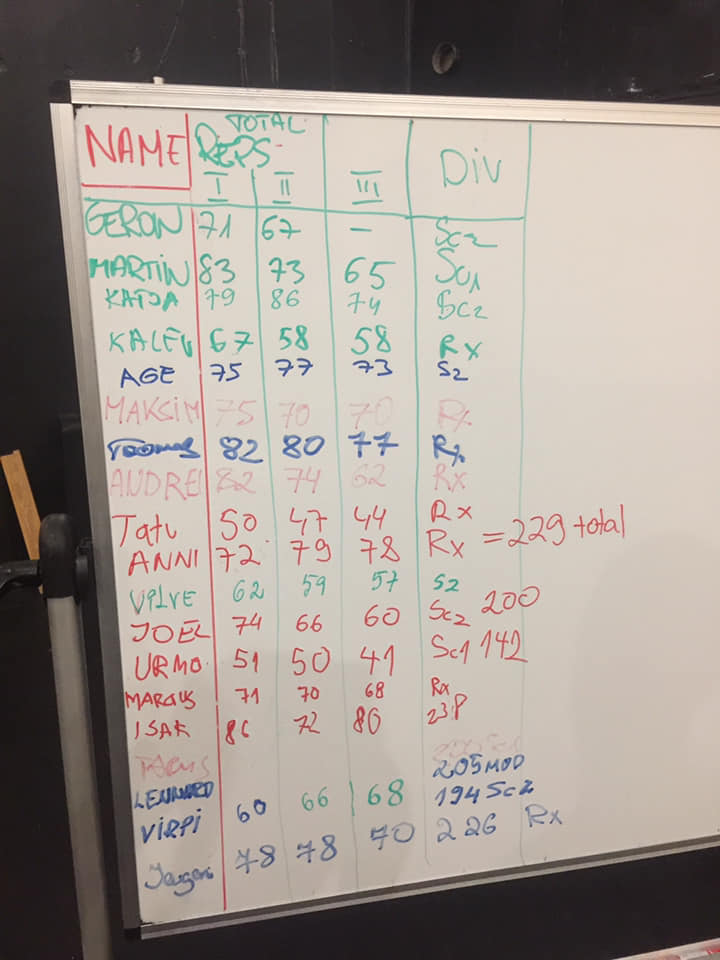 NAME TOTAL REPS DIV
I II III
GERON 71 67 - Sc2
MARTIN 83 73 65 Sc1
KATJA 79 86 74 Sc2
KALEV 67 58 58 RX
AGE 75 77 73 S2
MAKSIM 75 70 70 Rx
Toomas 82 80 77 Rx
ANDREI 82 74 62 RX
Tatu 50 47 44 RX
ANNI 72 79 78 Rx = 229 total
VALVE 62 59 57 S2
JOEL 74 66 60 Sc2 200
URMO 51 50 41 Sc1 142
MARGUS 71 70 68 Rx
ISAK 86 72 80 238
LENNARD 205 MOD
VIRPI 60 66 68 194 Sc2
Jevgeni 78 78 70 226 Rx